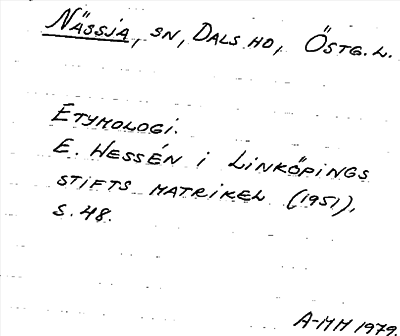 Nässja, sn, Dals hd, Östg.l.
Etymologi.
E. Wessén i Linköpings
stifts matrikel (1951),
s. 48.
A-MH 1979.